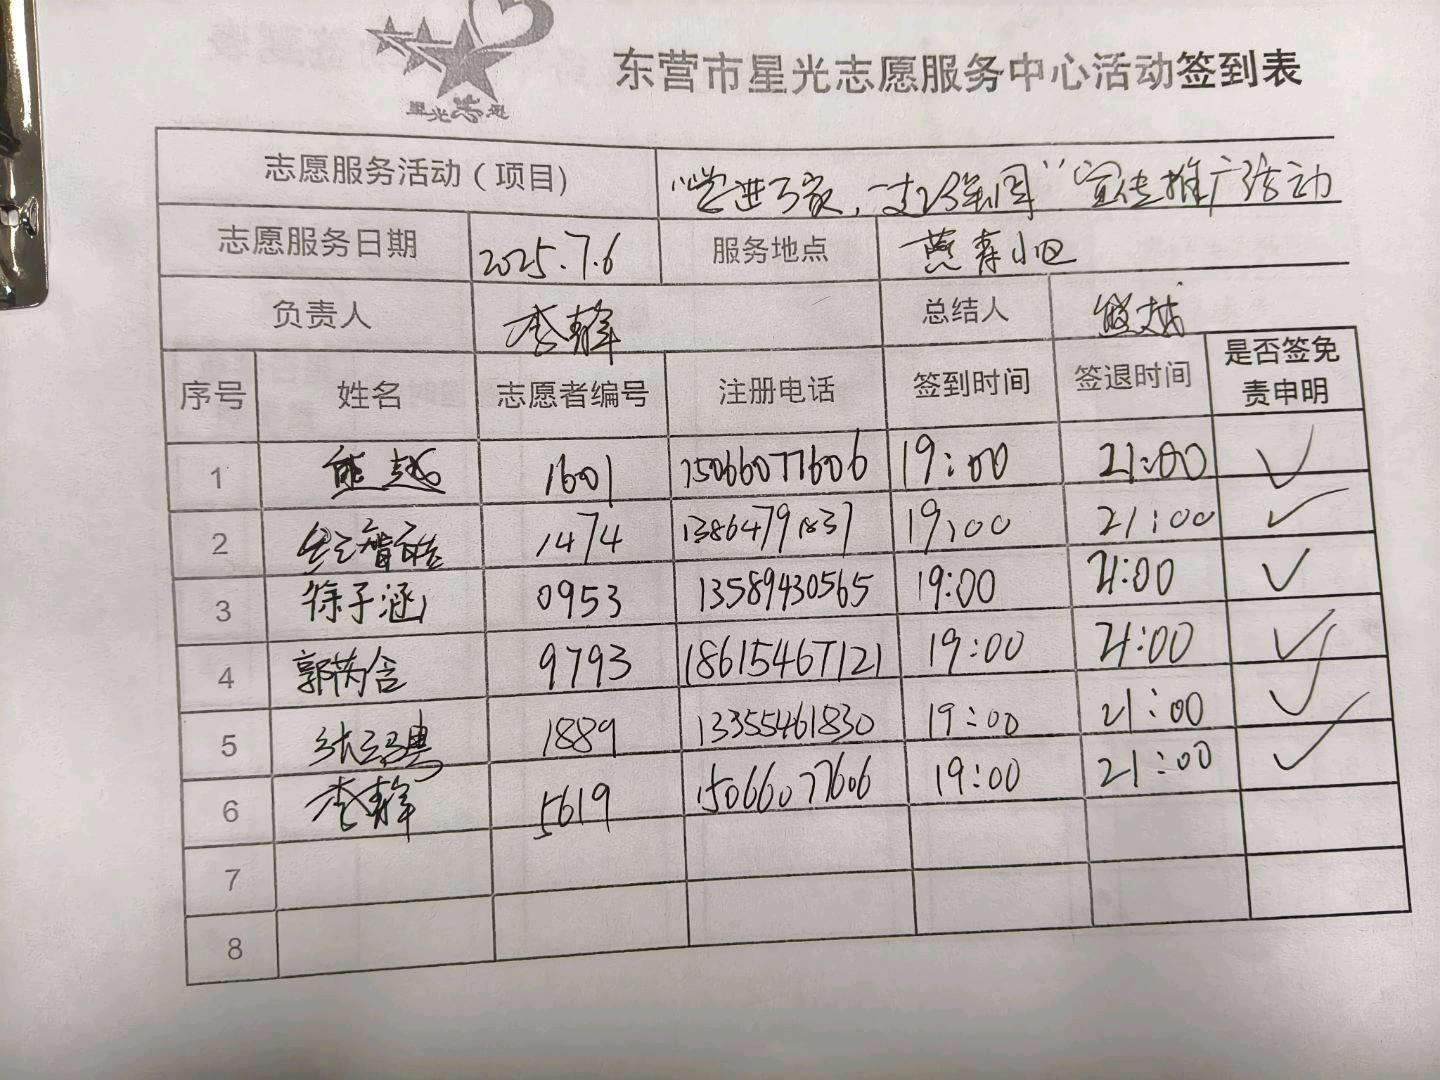 星光志愿
东营市星光志愿服务中心活动签到表
志愿服务活动（项目） 宣传推广活动
志愿服务日期 2025.7.6 服务地点 燕森小区
负责人 李锋 总结人 熊越
序号 姓名 志愿者编号 注册电话 签到时间 签退时间 是否签免责申明
1 熊越 1601 15066077606 19:00 21:00 ✓
2 1474 13864791837 19:00 21:00 ✓
3 徐子涵 0953 13589430565 19:00 21:00 ✓
4 郭芮含 9793 18615467121 19:00 21:00 ✓
5 1889 13355461830 19:00 21:00 ✓
6 李锋 5619 15066077606 19:00 21:00 ✓
7
8